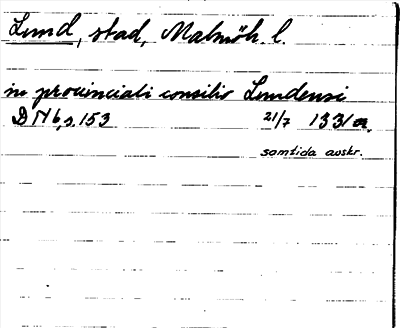 Lund, stad, Malmöh. l.
in provinciali consilio Lundensi
DN 6, s. 153 21/7 1331
samtida avskr.